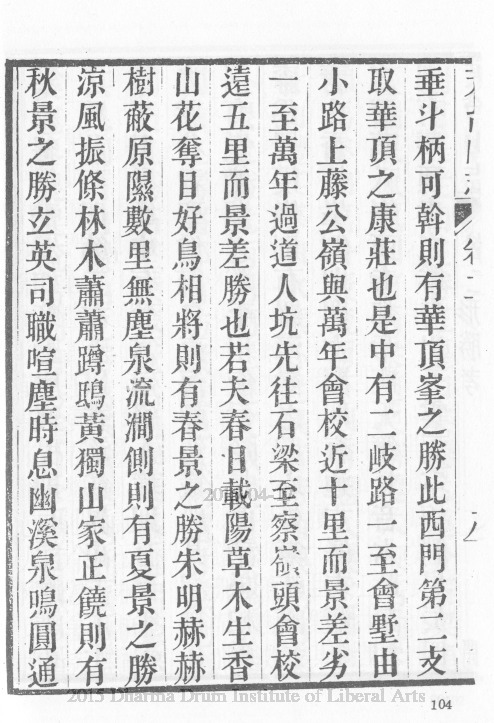 垂斗柄可斡則有華頂峯之勝此西門第二支
取華頂之康莊也是中有二岐路一至會墅由
小路上藤公嶺與萬年會校近十里而景差劣
一至萬年過道人坑先往石梁至察嶺頭會校
遠五里而景差勝也若夫春日載陽草木生香
山花奪目好鳥相將則有春景之勝朱明赫赫
樹蔽原隰數里無塵泉流澗側則有夏景之勝
涼風振條林木蕭蕭蹲鴟黃獨山家正饒則有
秋景之勝玄英司職喧塵時息幽溪泉鳴圓通
104
2015 Dharma Drum Institute of Liberal Arts